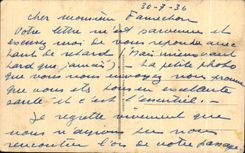 30-7-36
cher monsieur Famechon
Votre lettre m'est parvenue et
excusez moi de vous répondre avec
tant de retard (mais mieux vaut
tard que jamais). La petite photo
que vous nous envoyez nous prouve
que vous êtes tous en excellente
santé et c'est l'essentiel.
Je regrette vivement que
nous n'ayons pu nous
rencontrer lors de votre passage